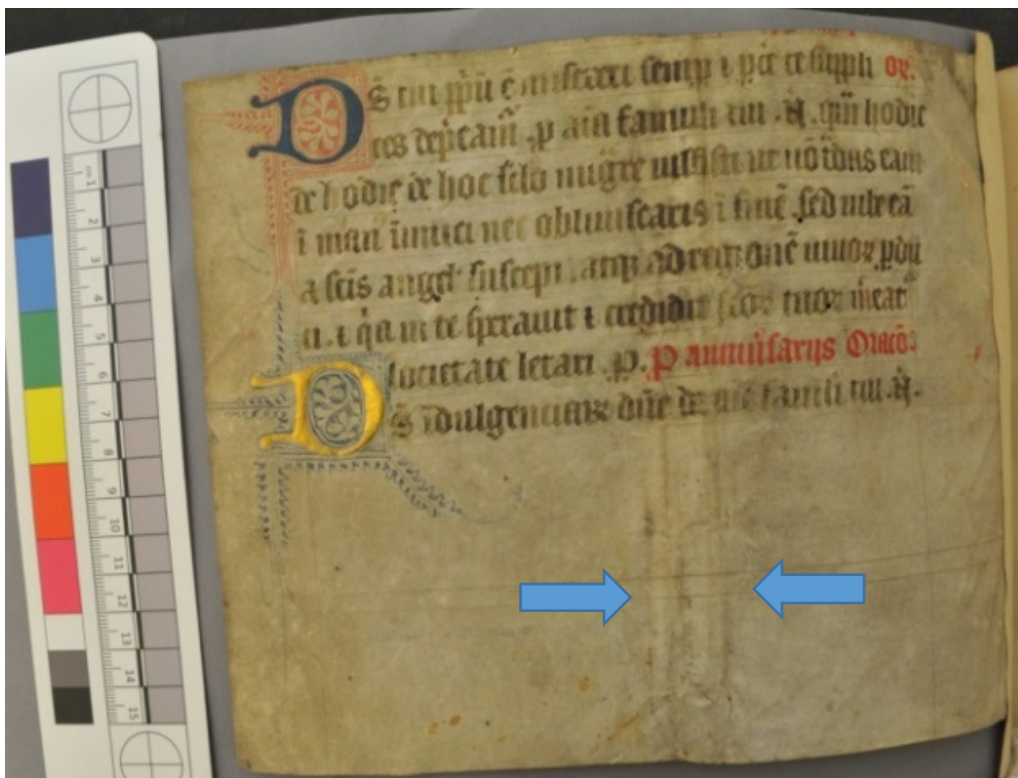 Ds cui ppũ ẽ miserei semp ⁊ pce te suppli or.
ces dep̃cam̃ .p aia famuli tui .N. quã hodie
de hodie de hoc sclo mig̃re iussisti ut nõ tdas eam
ĩ man̄ inimici nec obliuiscaris ĩ finẽ .sed iube eã
a scĩs angel suscepi .atqꝫ ad regionẽ uiuoꝝ pdu
ci. ⁊ q̃a in te sperauit ⁊ credidit scoꝝ tuoꝝ meat
societate letari .p. P anniũsarijs Oracõ
Ds ĩdulgenciaꝝ dñe da aie famuli tui .N.
1
2
3
4
5
6
7
8
9
10
11
12
13
14
15